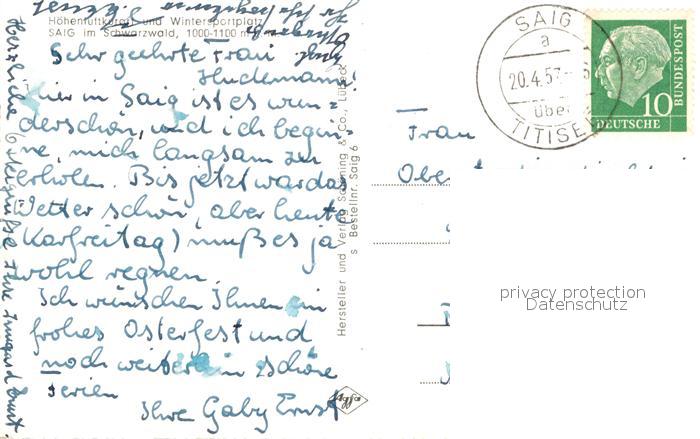 Höhenluftkurort und Wintersportplatz
SAIG im Schwarzwald, 1000-1100 m
Sehr geehrte Frau
Hudemann!
Hier in Saig ist es wun=
derschön, und ich begin=
ne, mich langsam zu
erholen. Bis jetzt war das
Wetter schön, aber heute
(Karfreitag) muß es ja
wohl regnen.
Ich wünschen Ihnen ein
frohes Osterfest und
noch weiterhin schöne
Ferien
Ihre Gaby Ernst
Herzliche Ostergrüße Ihre Irmgard Ernst.
Hersteller und Verlag & Co., Lübeck
s Bestellnr. Saig 6
Agfa
SAIG
a
20.4.57
über
TITISEE
10
DEUTSCHE
BUNDESPOST
Frau
privacy protection
Datenschutz